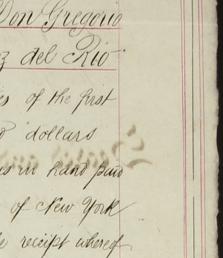 Don Gregorio
z del Rio
es of the first
d dollars
es in hand paid
of New York
e receipt whereof